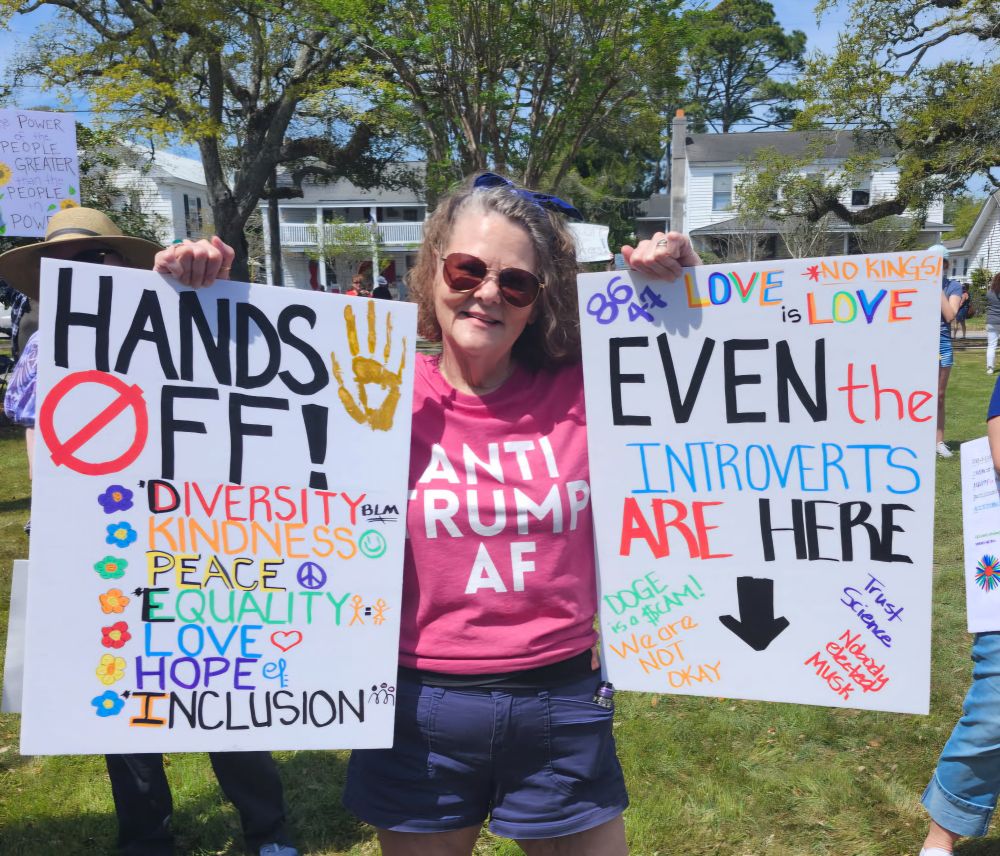 POWER
of the
PEOPLE
GREATER
than the
PEOPLE
in
POWER
HANDS
OFF!
*DIVERSITY BLM
KINDNESS
PEACE
*EQUALITY =
LOVE
HOPE
*INCLUSION
ANTI
TRUMP
AF
86 47 LOVE *NO KINGS!
is LOVE
EVEN the
INTROVERTS
ARE HERE
DOGE
is a $CAM!
We are
NOT
OKAY
Trust
Science
Nobody
elected
MUSK